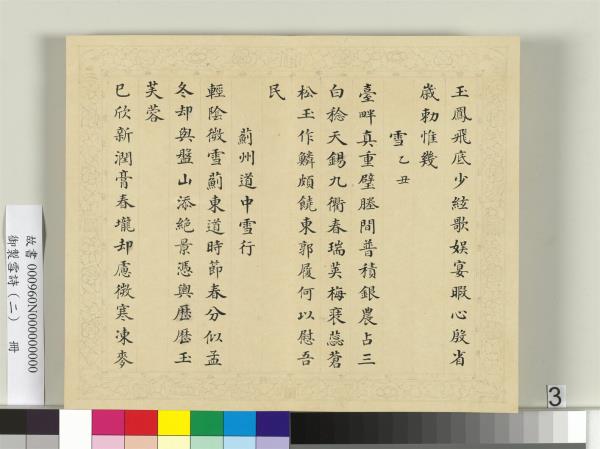 玉鳳飛底少絃歌娱宴暇心殷省
歲勅惟幾
雪乙丑
臺畔真重璧塍間普積銀農占三
白稔天錫九衢春瑞莢梅裒蕊蒼
松玉作鱗頗饒東郭履何以慰吾
民
薊州道中雪行
輕陰微雪薊東道時節春分似孟
冬却與盤山添絶景憑輿歴歴玉
芙蓉
已欣新潤膏春壠却慮微寒凍麥
故書 000960N000000000
御製雪詩(二) 冊
3